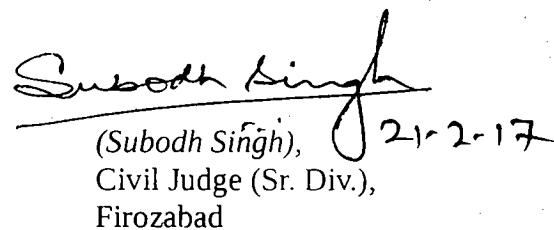 Subodh Singh
21-2-17
(Subodh Singh),
Civil Judge (Sr. Div.),
Firozabad